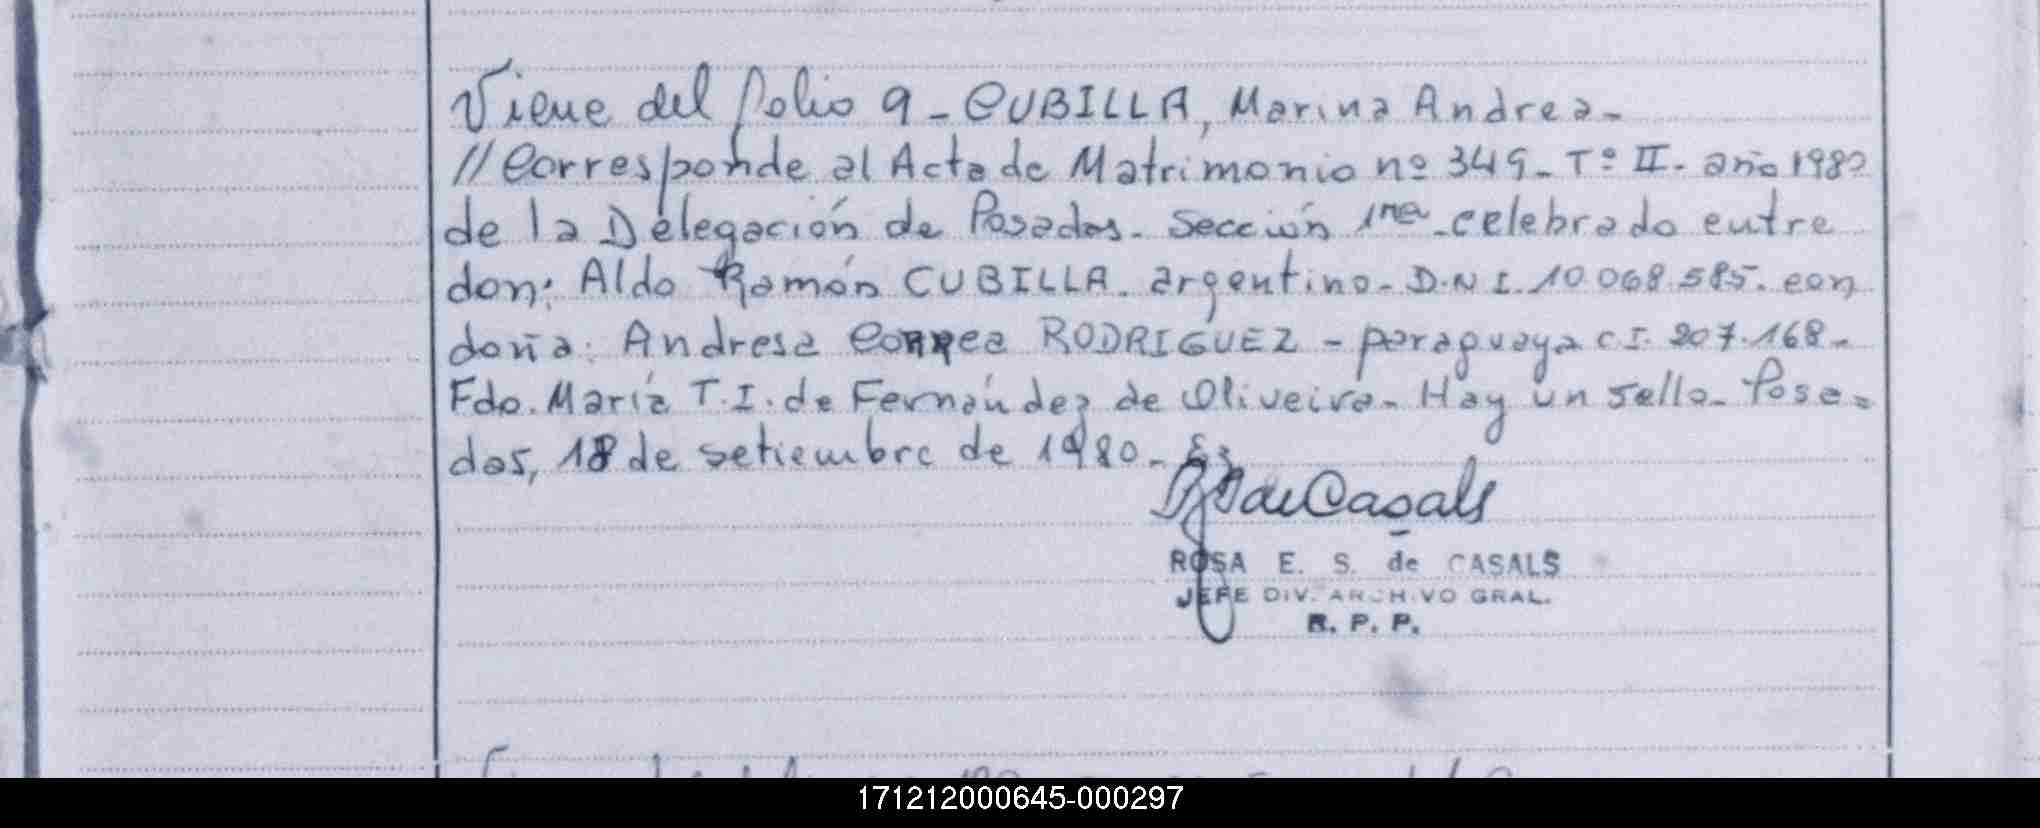 Viene del folio 9 - CUBILLA, Marina Andrea -
// Corresponde al Acta de Matrimonio nº 349 - Tº II - año 1980
de la Delegación de Posadas - Sección 1ra - celebrado entre
don: Aldo Ramón CUBILLA. argentino - D.N.I. 10.068.585. con
doña: Andresa Correa RODRIGUEZ - paraguaya C.I. 207.168 -
Fdo. María T.I. de Fernández de Oliveira - Hay un sello - Posa=
das, 18 de setiembre de 1980 -
de Casals
ROSA E. S. de CASALS
JEFE DIV. ARCHIVO GRAL.
R. P. P.
171212000645-000297